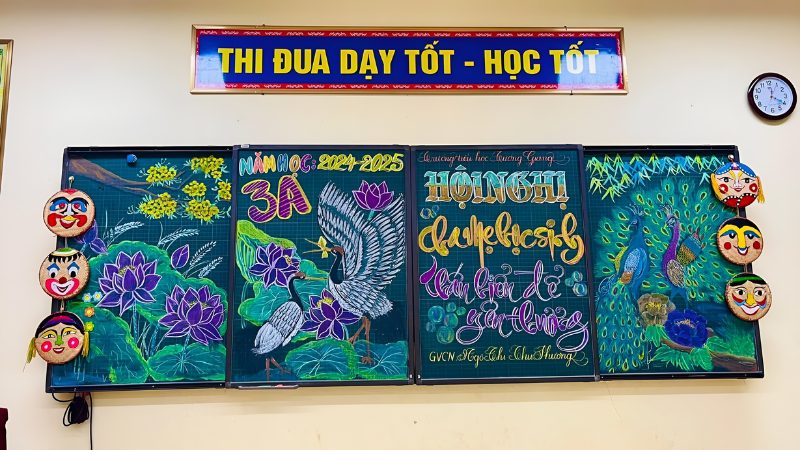 THI ĐUA DẠY TỐT - HỌC TỐT
NĂM HỌC: 2024-2025
3A
Trường tiểu học Hương Giang
HỘI NGHỊ
cha mẹ học sinh
Thấu hiểu để
yêu thương
GVCN Ngô Thị Thu Hương